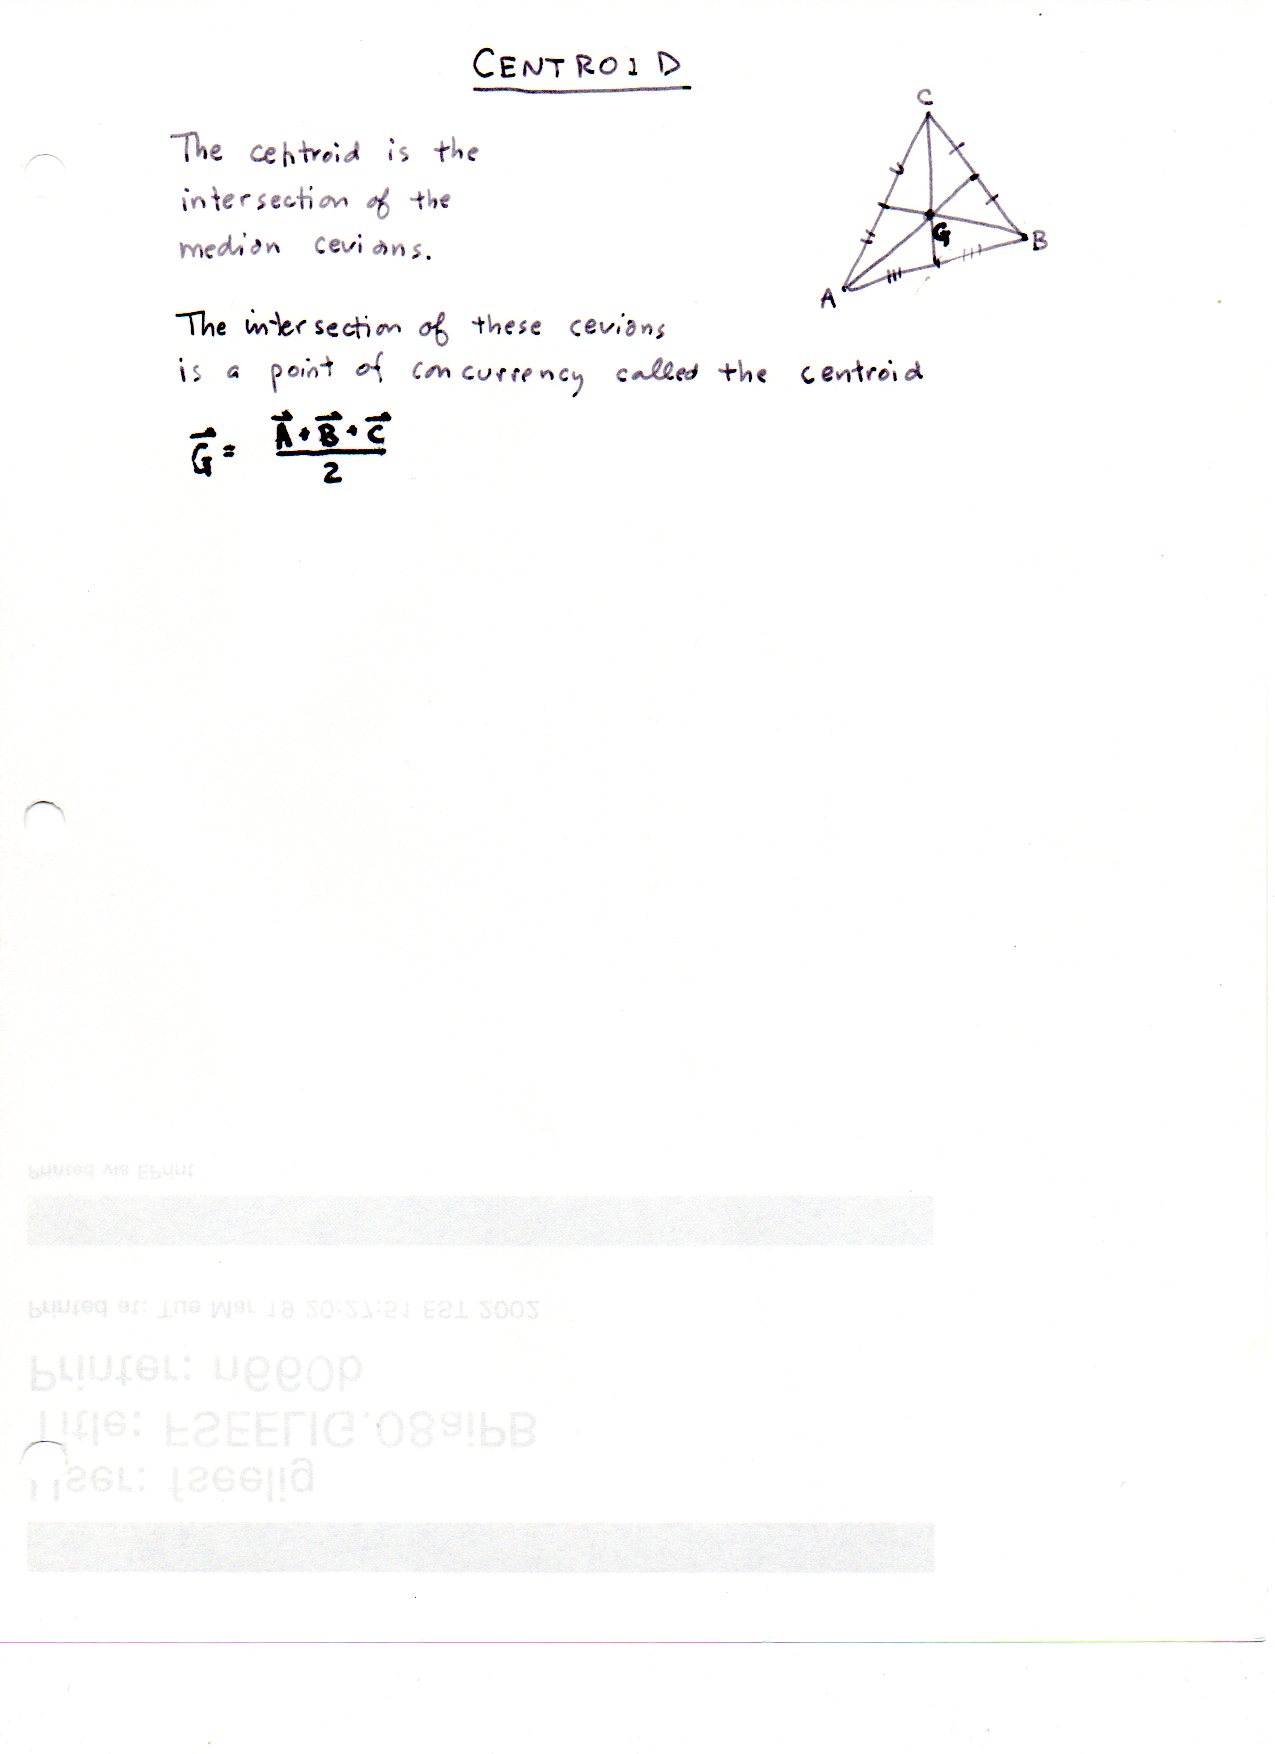 CENTROID
The centroid is the
intersection of the
median cevians.
C
G
B
A
The intersection of these cevians
is a point of concurrency called the centroid
G⃗ = (A⃗ + B⃗ + C⃗) / 2
Printed via EPrint
Printed at: Tue Mar 19 20:27:51 EST 2002
Printer: n660b
Title: FSEELIG.08aiPB
User: fseelig